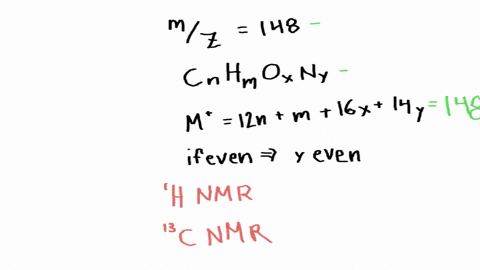 m/z = 148 –
CnHmOxNy –
M⁺ = 12n + m + 16x + 14y = 148
if even ⇒ y even
¹H NMR
¹³C NMR